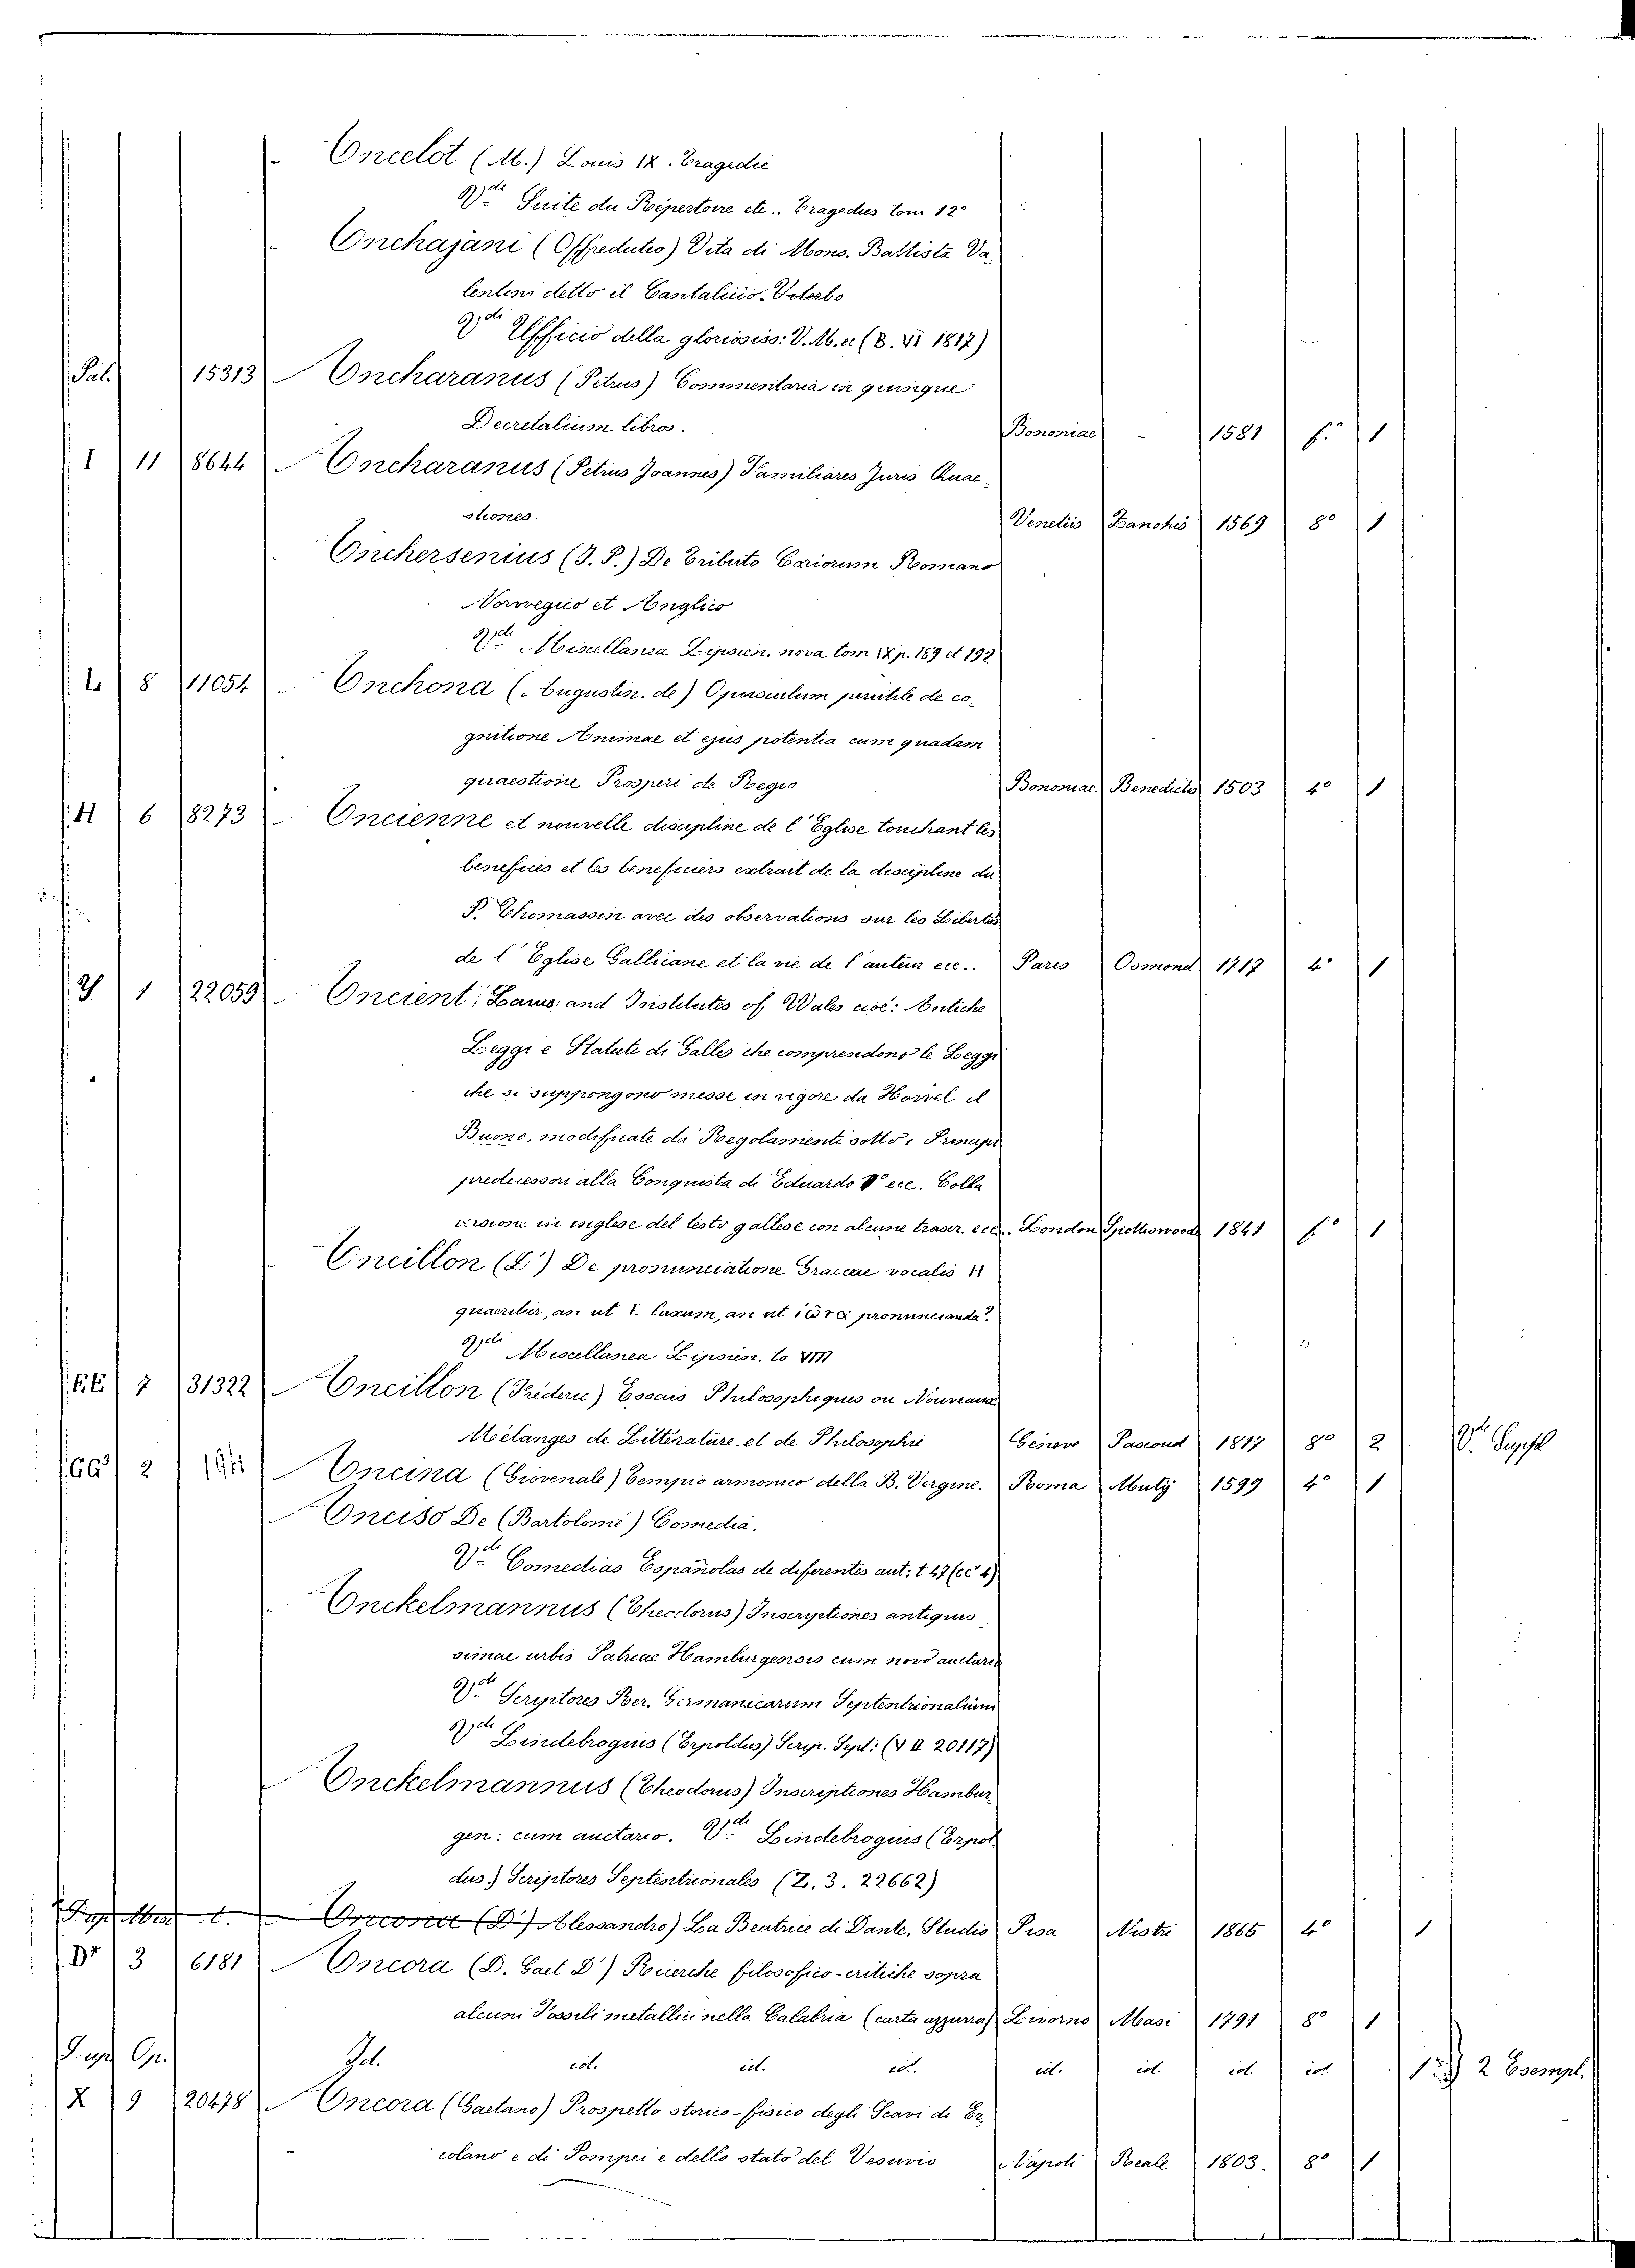 Ancelot (M.) Louis IX. Tragedie
V.di Suite du Répertoire etc.. Tragedies tom 12°
Anchajani (Offredutio) Vita di Mons. Battista Va-
lentini detto il Cantalicio. Viterbo
V.di Ufficio della gloriosiss: V. M. ec (B. VI 1817)
Pal. 15313 Ancharanus (Petrus) Commentaria in quinque
Decretalium libros. Bononiae - 1581 f.° 1
I 11 8644 Ancharanus (Petrus Joannes) Familiares Juris Quae-
stiones. Venetiis Zanchis 1569 8° 1
Anchersenius (J. P.) De Tributo Cariorum Romano
Norvegiio et Anglico
V.di Miscellanea Lypsien. nova tom IX p. 189 et 192
L 8 11054 Anchona (Augustin. de) Opusculum perutile de co-
gnitione Animae et ejus potentia cum quadam
quaestione Prosperi de Regio Bononiae Benedictis 1503 4° 1
H 6 8273 Ancienne et nouvelle discipline de l'Eglise touchant les
benefices et les beneficiers extrait de la discipline du
P. Thomassin avec des observations sur les Libertés
de l'Eglise Gallicane et la vie de l'auteur ecc.. Paris Osmond 1717 4° 1
Y 1 22059 Ancient; Laws; and Institutes of Wales cioè: Antiche
Leggi e Statuti di Galles che comprendono le Leggi
che si suppongono messe in vigore da Howel il
Buono, modificate da Regolamenti sotto i Principi
predecessori alla Conquista di Eduardo I° ecc. Colla
versione in inglese del testo gallese con alcune trascr. ecc. London Spottiswoode 1841 f° 1
Ancillon (D') De pronunciatione Graecae vocalis H
quaeritur, an ut E laxum, an ut ἰῶτα pronuncianda?
V.di Miscellanea Lipsien. to VIII
EE 7 31322 Ancillon (Fréderic) Essais Philosophiques ou Nouveaux
Mélanges de Litterature et de Philosophie Geneve Pascoud 1817 8° 2 V.di Suppl.
GG 2 Ancina (Giovenale) Tempio armonico della B. Vergine. Roma Mutÿ 1599 4° 1
Anciso De (Bartolomé) Comedia.
V.di Comedias Españolas de diferentes aut: t 47 (cc 4)
Anckelmannus (Theodorus) Inscriptiones antiquis-
simae urbis Patriae Hamburgensis cum novo auctario
V.di Scriptores Rer. Germanicarum Septentrionalium
V.di Lindebrogius (Erpoldus) Scrip. Sept: (V II 20117)
Anckelmannus (Theodorus) Inscriptiones Hambur-
gen: cum auctario. V.di Lindebrogius (Erpol-
dus) Scriptores Septentrionales (Z. 3. 22662)
Ancona (D') Alessandro) La Beatrice di Dante. Studio Pisa Nistri 1865 4° 1
D' 3 6181 Ancora (D. Gael D') Ricerche filosofico-critiche sopra
alcuni Fossili metallici nella Calabria (carta azzurra) Livorno Masi 1791 8° 1
Id. id. id. id. id. id. id. id. 2 Esempl.
X 9 20478 Ancora (Gaetano) Prospetto storico-fisico degli Scavi di Er-
colano e di Pompei e dello stato del Vesuvio Napoli Reale 1803. 8° 1